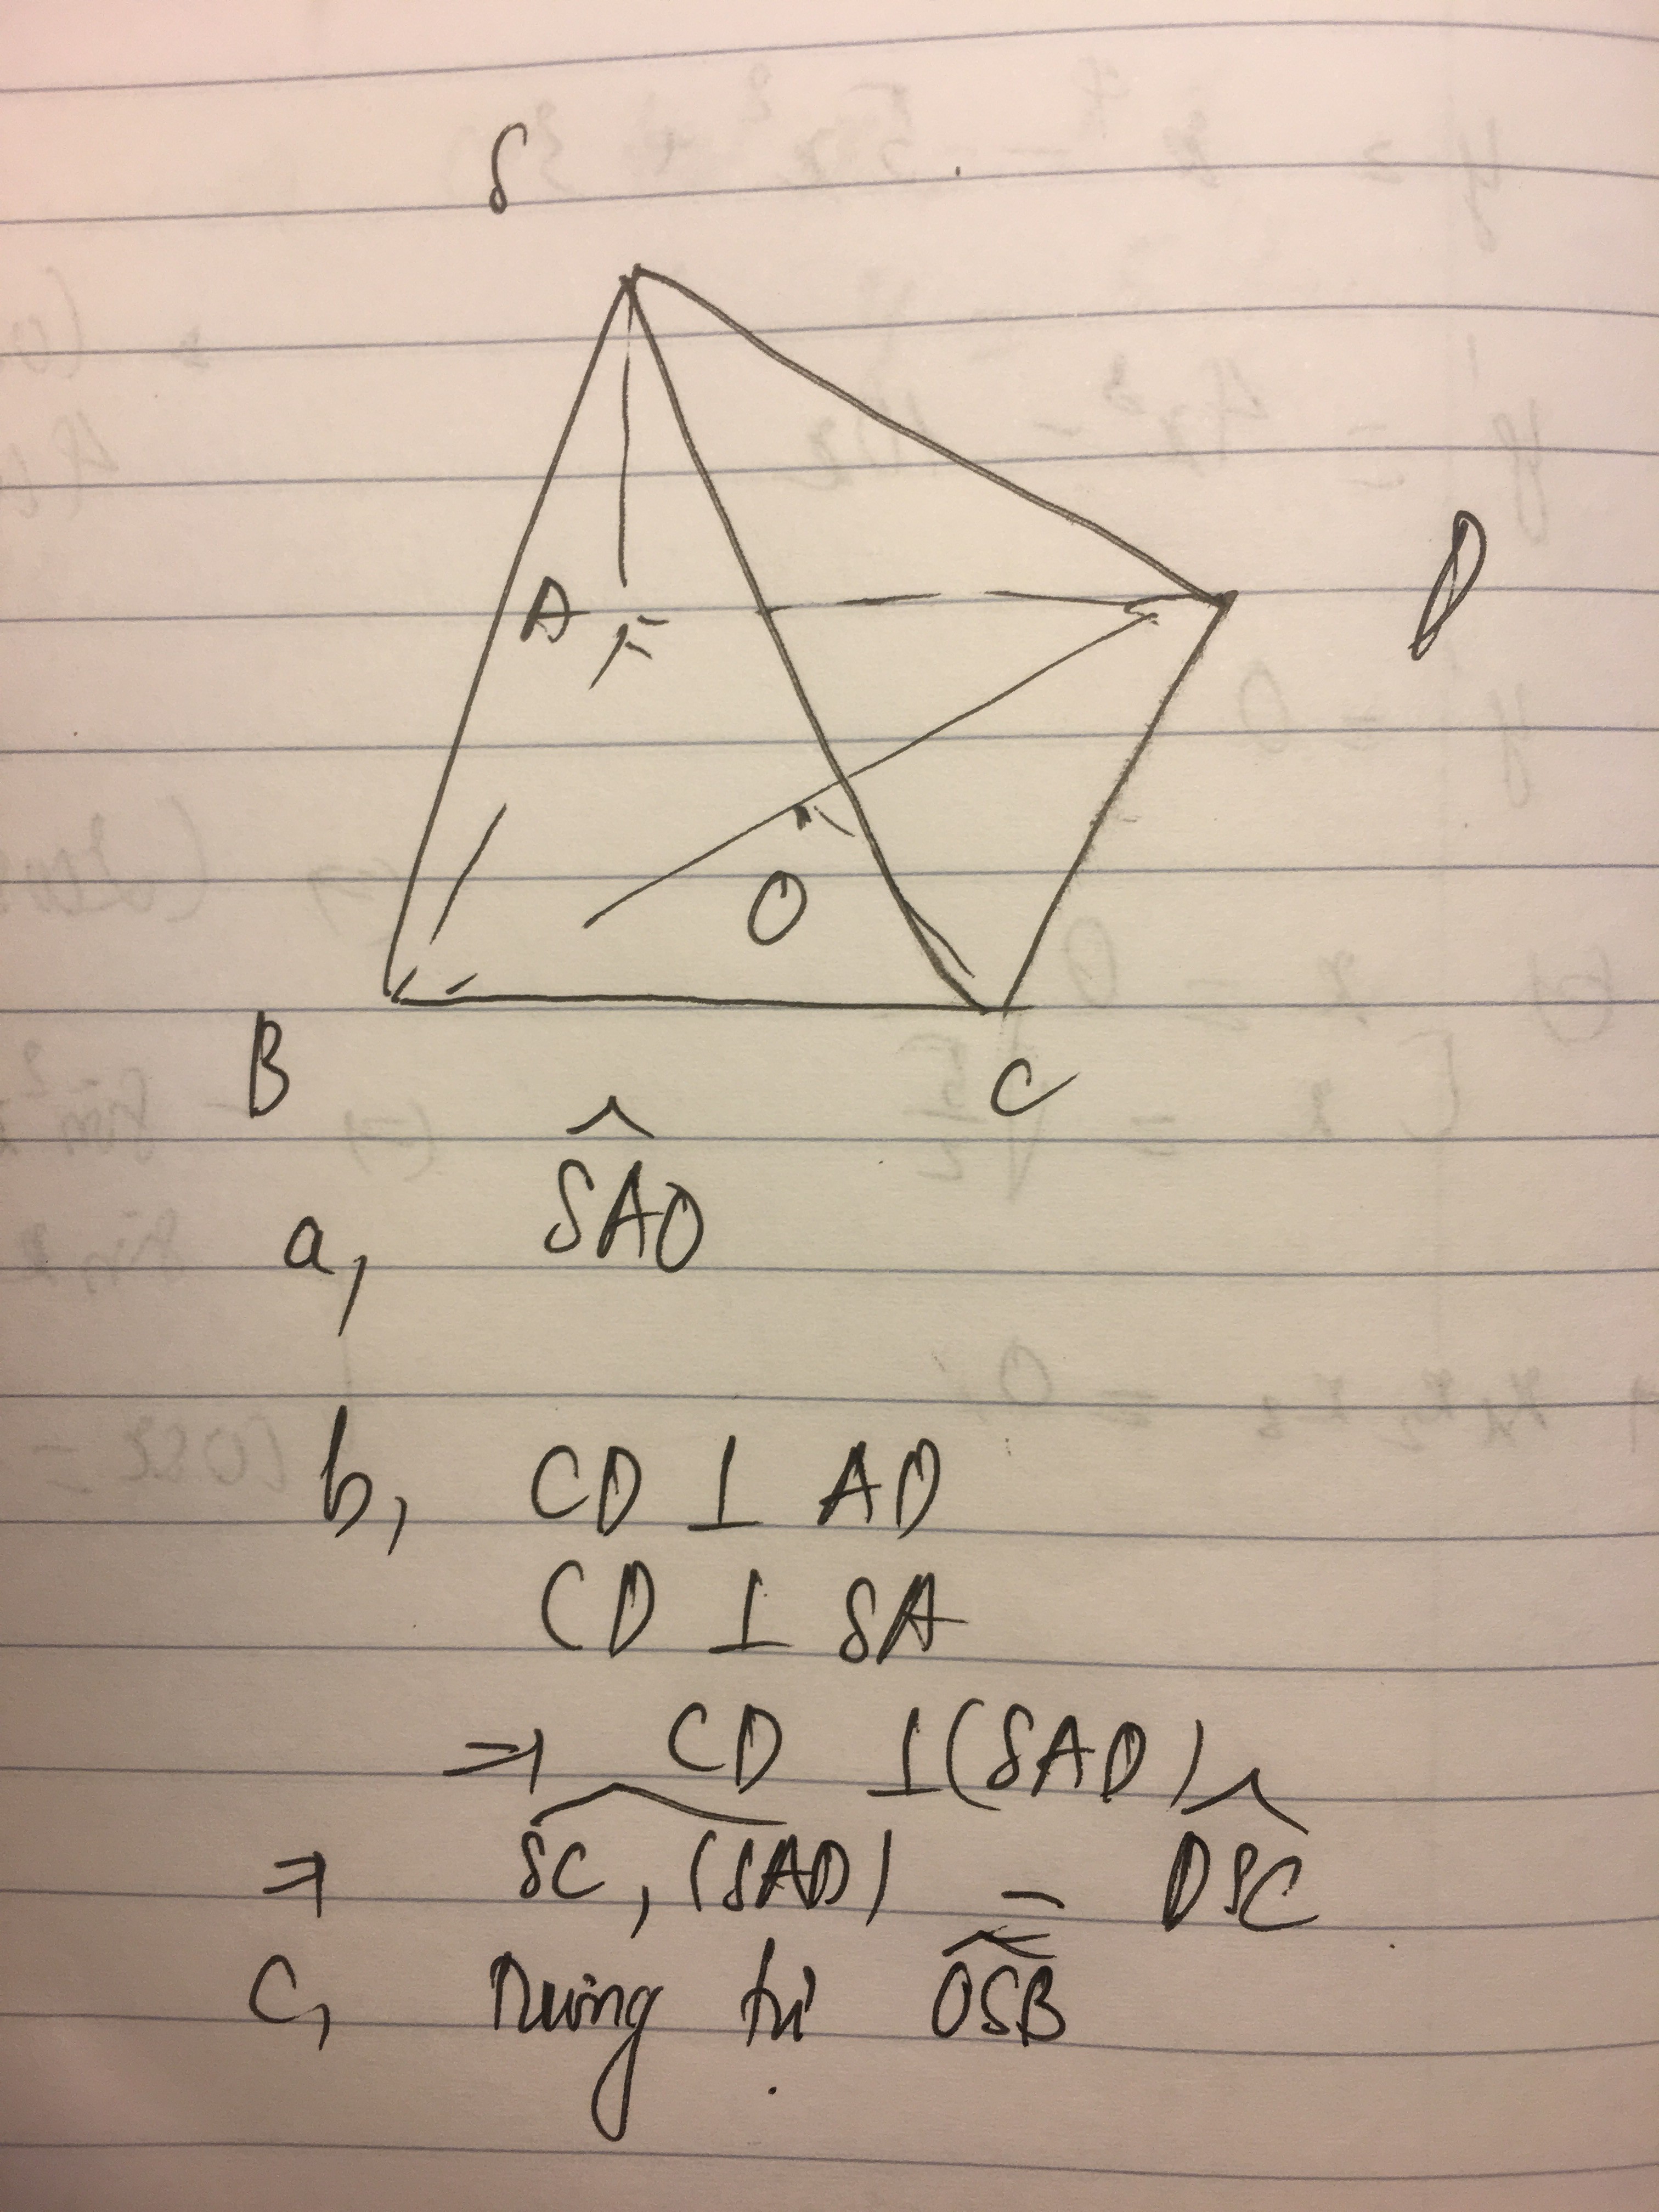 S
A
D
O
B
C
a, SAO
b, CD ⊥ AD
CD ⊥ SA
⇒ CD ⊥ (SAD)
⇒ SC, (SAD) = DSC
C, Tương tự OSB